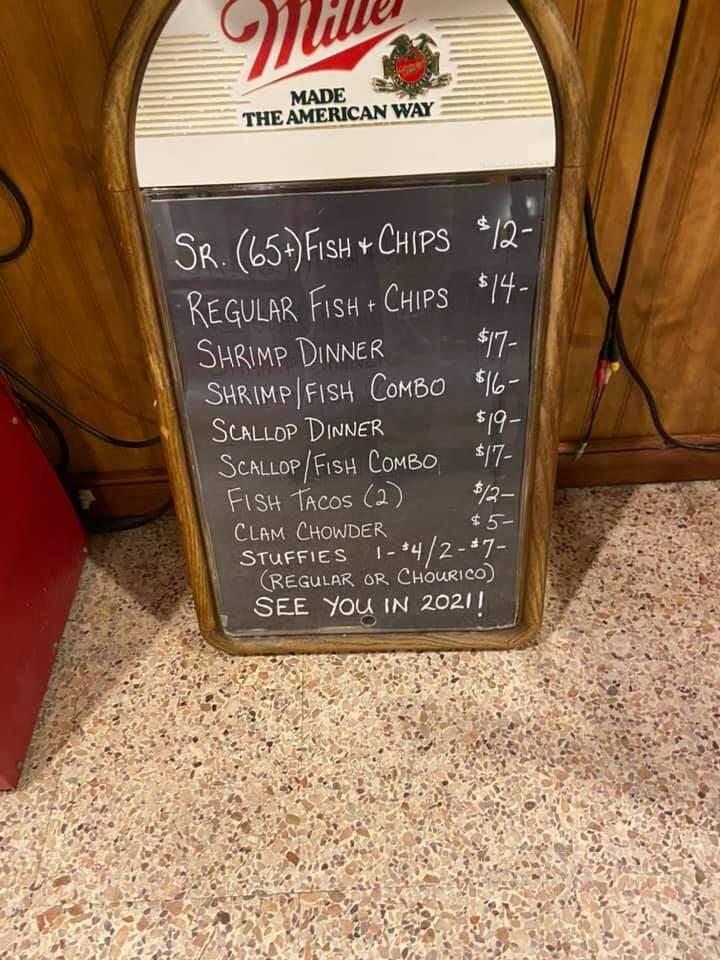 Miller
MADE
THE AMERICAN WAY
SR. (65+) FISH + CHIPS $12-
REGULAR FISH + CHIPS $14-
SHRIMP DINNER $17-
SHRIMP/FISH COMBO $16-
SCALLOP DINNER $19-
SCALLOP/FISH COMBO $17-
FISH TACOS (2) $12-
CLAM CHOWDER $5-
STUFFIES 1-$4/2-$7-
(REGULAR OR CHOURICO)
SEE YOU IN 2021!